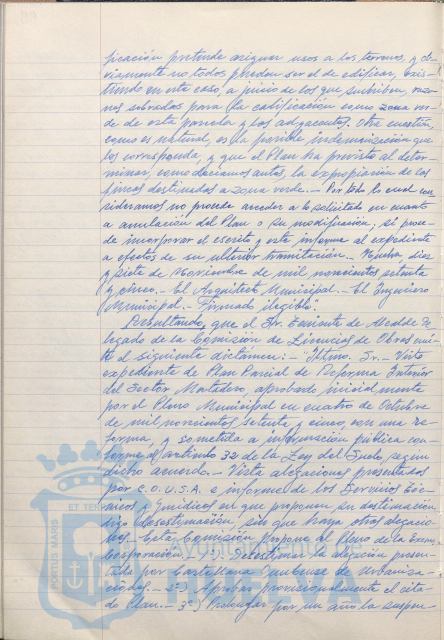 ficación pretende asignar usos a los terrenos, y ob-
viamente no todos pueden ser el de edificar, exis-
tiendo en este caso, a juicio de los que suscriben, razo-
nes sobradas para la calificación como zona ver-
de de esta parcela y las adyacentes. Otra cuestión,
como es natural, es la posible indemnización que
les corresponda, y que el Plan ha previsto al deter-
minar, como decíamos antes, la expropiación de las
fincas destinadas a zona verde.- Por todo lo cual con
sideramos no procede acceder a lo solicitado en cuanto
a anulación del Plan o su modificación; si proce-
de incorporar el escrito y este informe al expediente
a efectos de su ulterior tramitación.- Huelva, diez
y siete de Noviembre de mil novecientos setenta
y cinco.- El Arquitecto Municipal.- El Ingeniero
Municipal.- Firmado ilegible".
Resultando, que el Sr. Teniente de Alcalde De-
legado de la Comisión de Licencias de Obras emi-
te el siguiente dictámen:- "Iltmo. Sr.- Visto
expediente de Plan Parcial de Reforma Interior
del Sector Matadero, aprobado inicialmente
por el Pleno Municipal en cuatro de Octubre
de mil novecientos setenta y cinco, con una re-
forma, y sometida a información pública con-
forme al artículo 32 de la Ley del Suelo, según
dicho acuerdo.- Visto alegaciones presentadas
por C.O.U.S.A. e informe de los Servicios Téc-
nicos y Jurídicos en que proponen su destimación
desestimación, sin que haya otras alegacio-
nes.- Esta Comisión propone al Pleno de la Exma.
Corporación: Desestimar la alegación presen-
tada por Castellana Onubense de Urbaniza-
ciones.- 2º) Aprobar provisionalmente el cita-
do Plan.- 3º) Prolongar por un año la suspen-
PORTUS MARIS
ET TERRAE
AYUNTAMIENTO DE
HUELVA